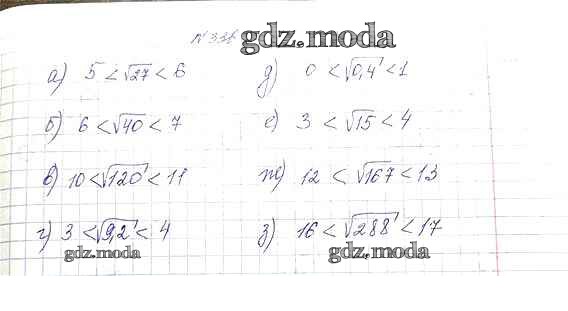 № 336 gdz.moda
а) 5 < √27 < 6
б) 6 < √40 < 7
в) 10 < √120 < 11
г) 3 < √9,2 < 4
gdz.moda
д) 0 < √0,4 < 1
е) 3 < √15 < 4
ж) 12 < √167 < 13
з) 16 < √288 < 17
gdz.moda